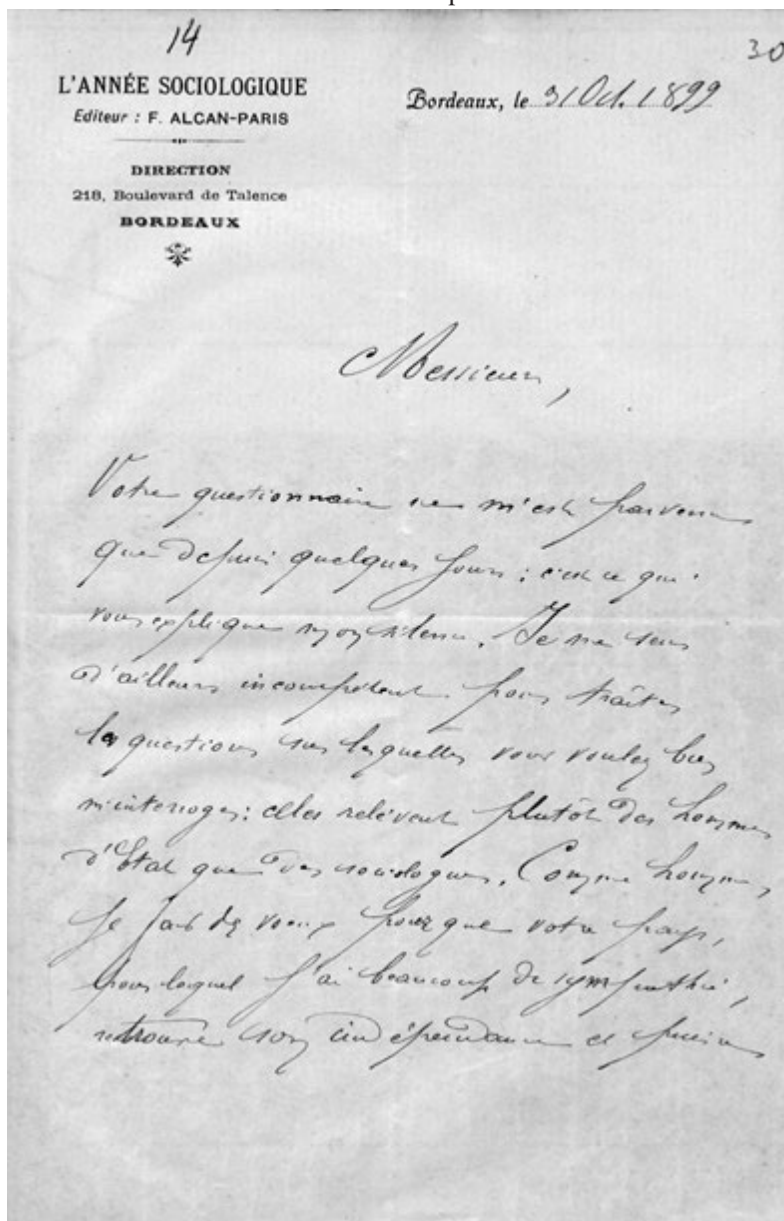 14
30
L'ANNÉE SOCIOLOGIQUE
Editeur : F. ALCAN-PARIS
DIRECTION
218, Boulevard de Talence
BORDEAUX
Bordeaux, le 31 Oct. 1899
Messieurs,
Votre questionnaire ne m'est parvenu
que depuis quelques jours ; c'est ce qui
vous explique mon silence. Je me sens
d'ailleurs incompétent pour traiter
les questions sur lesquelles vous voulez bien
m'interroger : elles relèvent plutôt des hommes
d'Etat que des sociologues. Comme homme,
je fais des vœux pour que votre pays,
pour lequel j'ai beaucoup de sympathie,
retrouve son indépendance et puisse